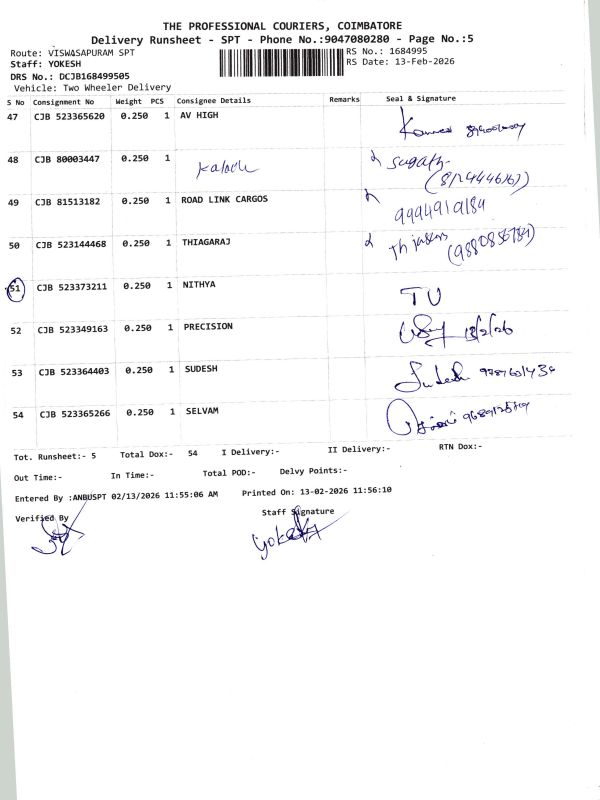 THE PROFESSIONAL COURIERS, COIMBATORE
Delivery Runsheet - SPT - Phone No.:9047080280 - Page No.:5
Route: VISWASAPURAM SPT RS No.: 1684995
Staff: YOKESH RS Date: 13-Feb-2026
DRS No.: DCJB168499505
Vehicle: Two Wheeler Delivery
S No Consignment No Weight PCS Consignee Details Remarks Seal & Signature
47 CJB 523365620 0.250 1 AV HIGH
48 CJB 80003447 0.250 1
49 CJB 81513182 0.250 1 ROAD LINK CARGOS 9994919184
50 CJB 523144468 0.250 1 THIAGARAJ
51 CJB 523373211 0.250 1 NITHYA TU
52 CJB 523349163 0.250 1 PRECISION 13/2/26
53 CJB 523364403 0.250 1 SUDESH Sudesh
54 CJB 523365266 0.250 1 SELVAM
Tot. Runsheet:- 5 Total Dox:- 54 I Delivery:- II Delivery:- RTN Dox:-
Out Time:- In Time:- Total POD:- Delvy Points:-
Entered By :ANBUSPT 02/13/2026 11:55:06 AM Printed On: 13-02-2026 11:56:10
Verified By Staff Signature